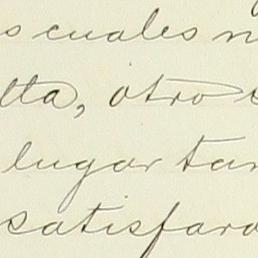 s cuales n
tta, otro
lugar tan
satisfara